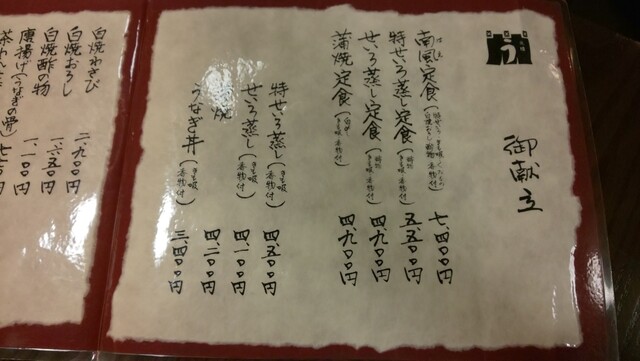 う
御献立
南風定食 七、四〇〇円
特せいろ蒸し定食 五、五〇〇円
せいろ蒸し定食 四、九〇〇円
蒲焼定食 四、九〇〇円
特せいろ蒸し(きも吸 香物付) 四、五〇〇円
せいろ蒸し(きも吸 香物付) 四、一〇〇円
焼 四、二〇〇円
うなぎ丼(きも吸 香物付) 三、四〇〇円
白焼わさび 二、九〇〇円
白焼おろし 一、六五〇円
白焼酢の物 一、一〇〇円
唐揚げ(うなぎの骨)
茶わん